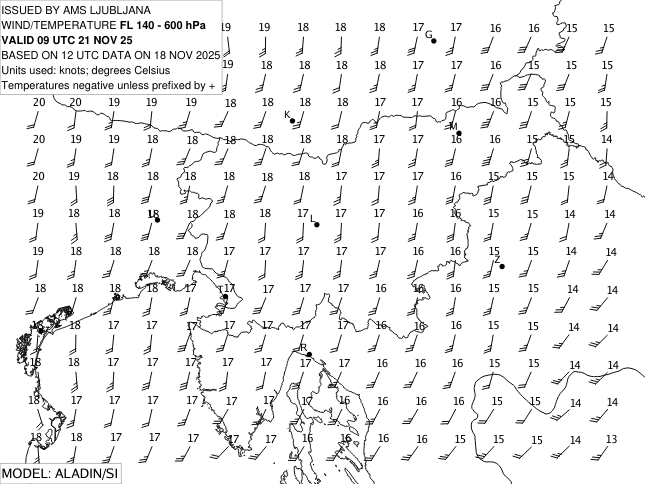 ISSUED BY AMS LJUBLJANA
WIND/TEMPERATURE FL 140 - 600 hPa
VALID 09 UTC 21 NOV 25
BASED ON 12 UTC DATA ON 18 NOV 2025
Units used: knots; degrees Celsius
Temperatures negative unless prefixed by +
19 19 18 18 18 17 17 16 16 15 15
G
19 18 18 18 18 17 17 16 15 15 15
20 20 19 19 19 18 18 18 18 17 17 16 16 15 15 15
K
M
20 19 19 19 18 18 18 18 18 17 17 16 16 15 15 14
20 19 18 18 18 18 18 18 17 17 17 16 15 15 15 14
19 18 18 18 18 18 18 17 17 17 16 16 15 15 14 14
L
19 18 18 18 18 17 17 17 17 17 16 16 15 15 14 14
Z
18 18 18 18 17 17 17 17 17 16 16 16 15 15 14 14
18 18 17 17 17 17 17 17 17 16 16 16 15 15 14 14
R
18 17 17 17 17 17 17 17 17 16 16 16 15 15 14 14
18 18 17 17 17 17 17 17 16 16 16 16 15 15 14 14
18 18 17 17 17 17 17 16 16 16 16 15 15 15 14 13
MODEL: ALADIN/SI